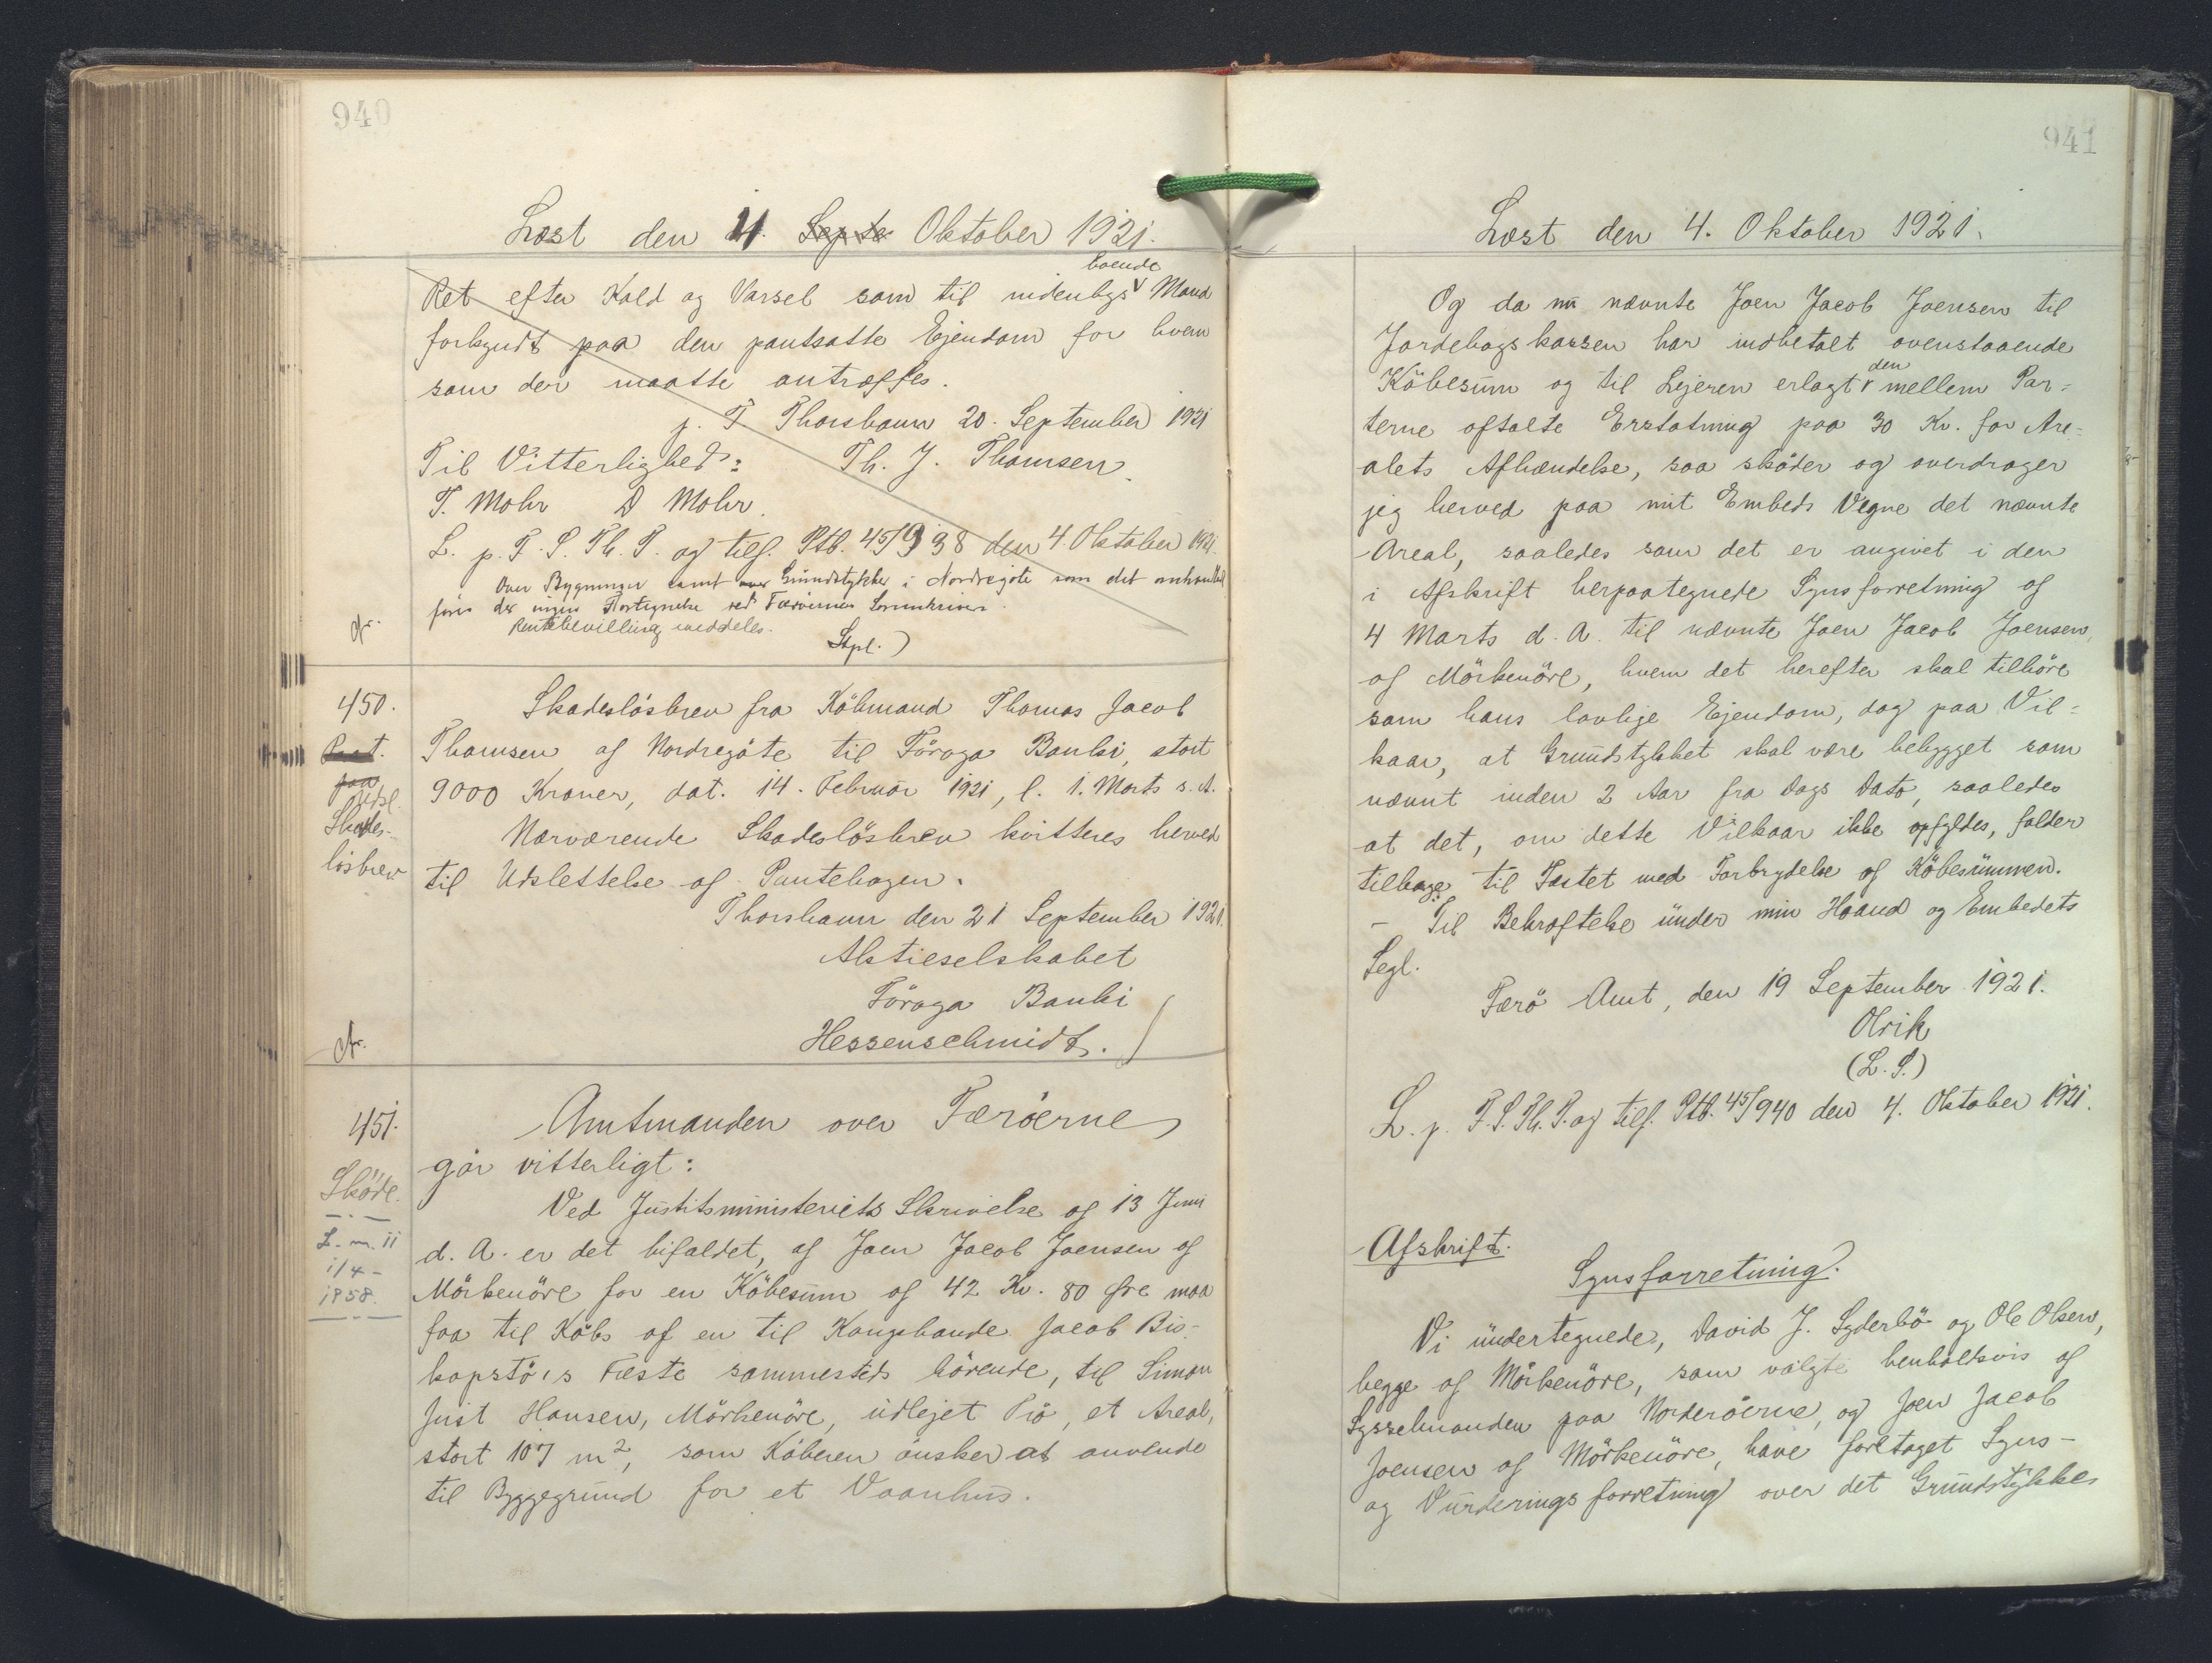 940
Læst den 4. Septe Oktober 1921.
Ret efter Kald og Varsel som til indenbys boende Mand
forkyndt paa den pantsatte Ejendom for hvem
som der maatte antræffes.
p. T Thorshavn 20. September 1921
Til Vitterlighed: Th. J. Thomsen.
T. Mohr D Mohr.
L. p. F. S. Th. P. og tilf. Ptb. 45/938 den 4. Oktober 1921.
Over Bygninger samt over Grundstykker i Nordregöte som det omhandlede
föres der ingen Fortegnelse ved Færøernes Sorenskriveri.
Rentebevilling meddeles.
Stpl.)
450.
Pant.
paa
Udsl.
Skades-
lösbrev
Skadeslösbrev fra Köbmand Thomas Jacob
Thomsen af Nordregöte til Föroya Banki, stort
9000 Kroner, dat. 14. Februar 1921, l. 1. Marts s. A.
Nærværende Skadeslösbrev kvitteres herved
til Udslettelse af Pantebogen.
Thorshavn den 21 September 1921.
Aktieselskabet
Föroya Banki
Hessenschmidt.
451.
Sköde.
L. m. 11
1/4 -
1958.
Amtmanden over Færöerne
gör vitterligt:
Ved Justitsministeriets Skrivelse af 13 Juni
d. A. er det bifaldet, af Joen Jacob Joensen af
Mörkenöre for en Köbesum af 42 Kr. 80 Øre maa
faa til Köbs af en til Kongsbonde Jacob Bis-
kopstö's Fæste sammesteds hörende, til Simon
Just Hansen, Mörkenöre, udlejet Trö, et Areal,
stort 107 m², som Köberen önsker at anvende
til Byggegrund for et Vaanhus.
941
Læst den 4. Oktober 1921.
Og da nu nævnte Joen Jacob Joensen til
Jordebogskassen har indbetalt ovenstaaende
Köbesum og til Lejeren erlagt den mellem Par-
terne aftalte Erstatning paa 30 Kr. for Are-
alets Afhændelse, saa sköder og overdrager
jeg herved paa mit Embeds Vegne det nævnte
Areal, saaledes som det er angivet i den
i Afskrift herpaategnede Synsforretning af
4 Marts d. A. til nævnte Joen Jacob Joensen,
af Mörkenöre, hvem det herefter skal tilhöre
som hans lovlige Ejendom, dog paa Vil-
kaar, at Grundstykket skal være bebygget som
nævnt inden 2 Aar fra Dags Dato, saaledes
at det, om dette Vilkaar ikke opfyldes, falder
tilbage til Fæstet med Forbrydelse af Köbesummen.
- Til Bekræftelse under min Haand og Embedets
Segl.
Færö Amt, den 19 September 1921.
Olrik
(L. S.)
L. p. F. S. Th. P. og tilf. Ptb. 45/940 den 4. Oktober 1921.
Afskrift.
Synsforretning.
Vi undertegnede, David J. Syderbö og Ole Olsen,
begge af Mörkenöre, som valgte henholdsvis af
Sysselmanden paa Norderöerne, og Joen Jacob
Joensen af Mörkenöre, have foretaget Syns-
og Vurderingsforretning over det Grundstykke